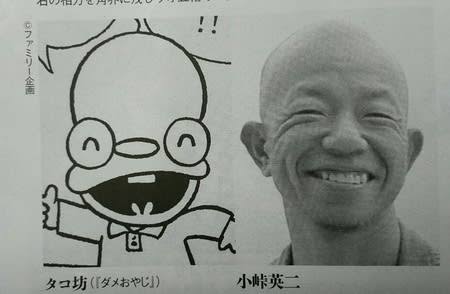 !!
©ファミリー企画
タコ坊(『ダメおやじ』)
小峠英二